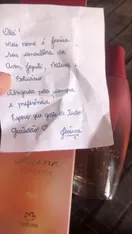 Olá!
meu nome é Jessica
sou consultora da
Avon, Jequiti, Natura e
Boticário
Obrigada pela compra
e preferência.
Espero que goste de tudo
Gratidão ♡
Jessica
natura